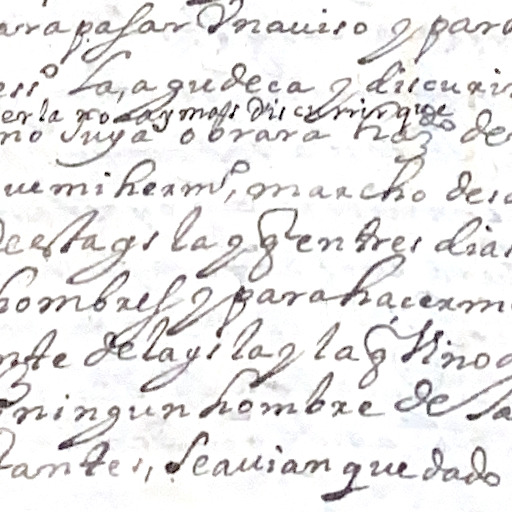 para pasar Unauiso y para
ess.o la, agudeca y discurir
er la no ay mass discurrir que
mo suya obrara haz.do de
ue mi herm.o, marcho desd
de esta ysla y q̃ entres dias
hombres y para hacerm
nte de la ysla y la q̃ Uino
ningun hombre de la
tantes, se auian quedado